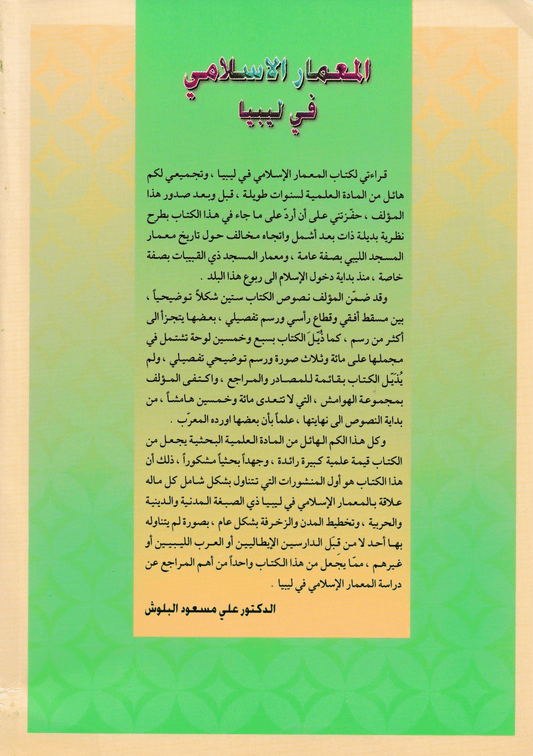 المعمار الاسلامي
في ليبيا
قراءتي لكتاب المعمار الإسلامي في ليبيا ، وتجميعي لكم
هائل من المادة العلمية لسنوات طويلة ، قبل وبعد صدور هذا
المؤلف ، حفّزتني على أن أردّ على ما جاء في هذا الكتاب بطرح
نظرية بديلة ذات بعد أشمل واتجاه مخالف حول تاريخ معمار
المسجد الليبي بصفة عامة ، ومعمار المسجد ذي القبيبات بصفة
خاصة ، منذ بداية دخول الإسلام الى ربوع هذا البلد .
وقد ضمّن المؤلف نصوص الكتاب ستين شكلاً توضيحياً ،
بين مسقط أفقي وقطاع رأسي ورسم تفصيلي ، بعضها يتجزأ الى
أكثر من رسم ، كما ذُيّلَ الكتاب بسبع وخمسين لوحة تشتمل في
مجملها على مائة وثلاث صورة ورسم توضيحي تفصيلي ، ولم
يُذيّل الكتاب بقائمة للمصادر والمراجع ، واكتفى المؤلف
بمجموعة الهوامش ، التي لا تتعدى مائة وخمسين هامشاً ، من
بداية النصوص الى نهايتها ، علماً بأن بعضها اورده المعرّب .
وكل هذا الكم الهائل من المادة العلمية البحثية يجعل من
الكتاب قيمة علمية كبيرة رائدة ، وجهداً بحثياً مشكوراً ، ذلك أن
هذا الكتاب هو أول المنشورات التي تتناول بشكل شامل كل ماله
علاقة بالمعمار الإسلامي في ليبيا ذي الصبغة المدنية والدينية
والحربية ، وتخطيط المدن والزخرفة بشكل عام ، بصورة لم يتناوله
بها أحد لا من قِبَل الدارسين الإيطاليين أو العرب الليبيين أو
غيرهم ، ممّا يجعل من هذا الكتاب واحداً من أهم المراجع عن
دراسة المعمار الإسلامي في ليبيا .
الدكتور علي مسعود البلوش